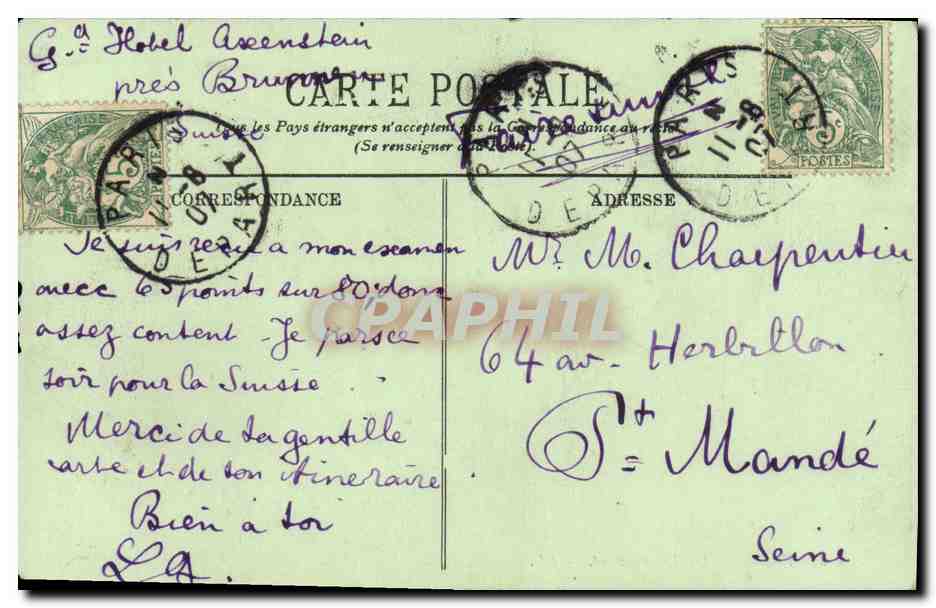 Gd Hotel Axenstein
près Brunnen
Suisse
CARTE POSTALE
Tous les Pays étrangers n'acceptent pas la Correspondance au recto
(Se renseigner à la Poste).
CORRESPONDANCE
Je suis recu a mon examen
avec 65 points sur 80 donc
assez content - Je pars ce
soir pour la Suisse.
Merci de ta gentille
carte et de ton itineraire
Bien à toi
LA.
ADRESSE
Mr. M. Charpentier
64 av. Herbillon
St Mandé
Seine
PARIS
11-8
07
DEPART
PARIS
07
DEPART
PARIS
11-8
07
DEPART
5c
POSTES
CPAPHIL